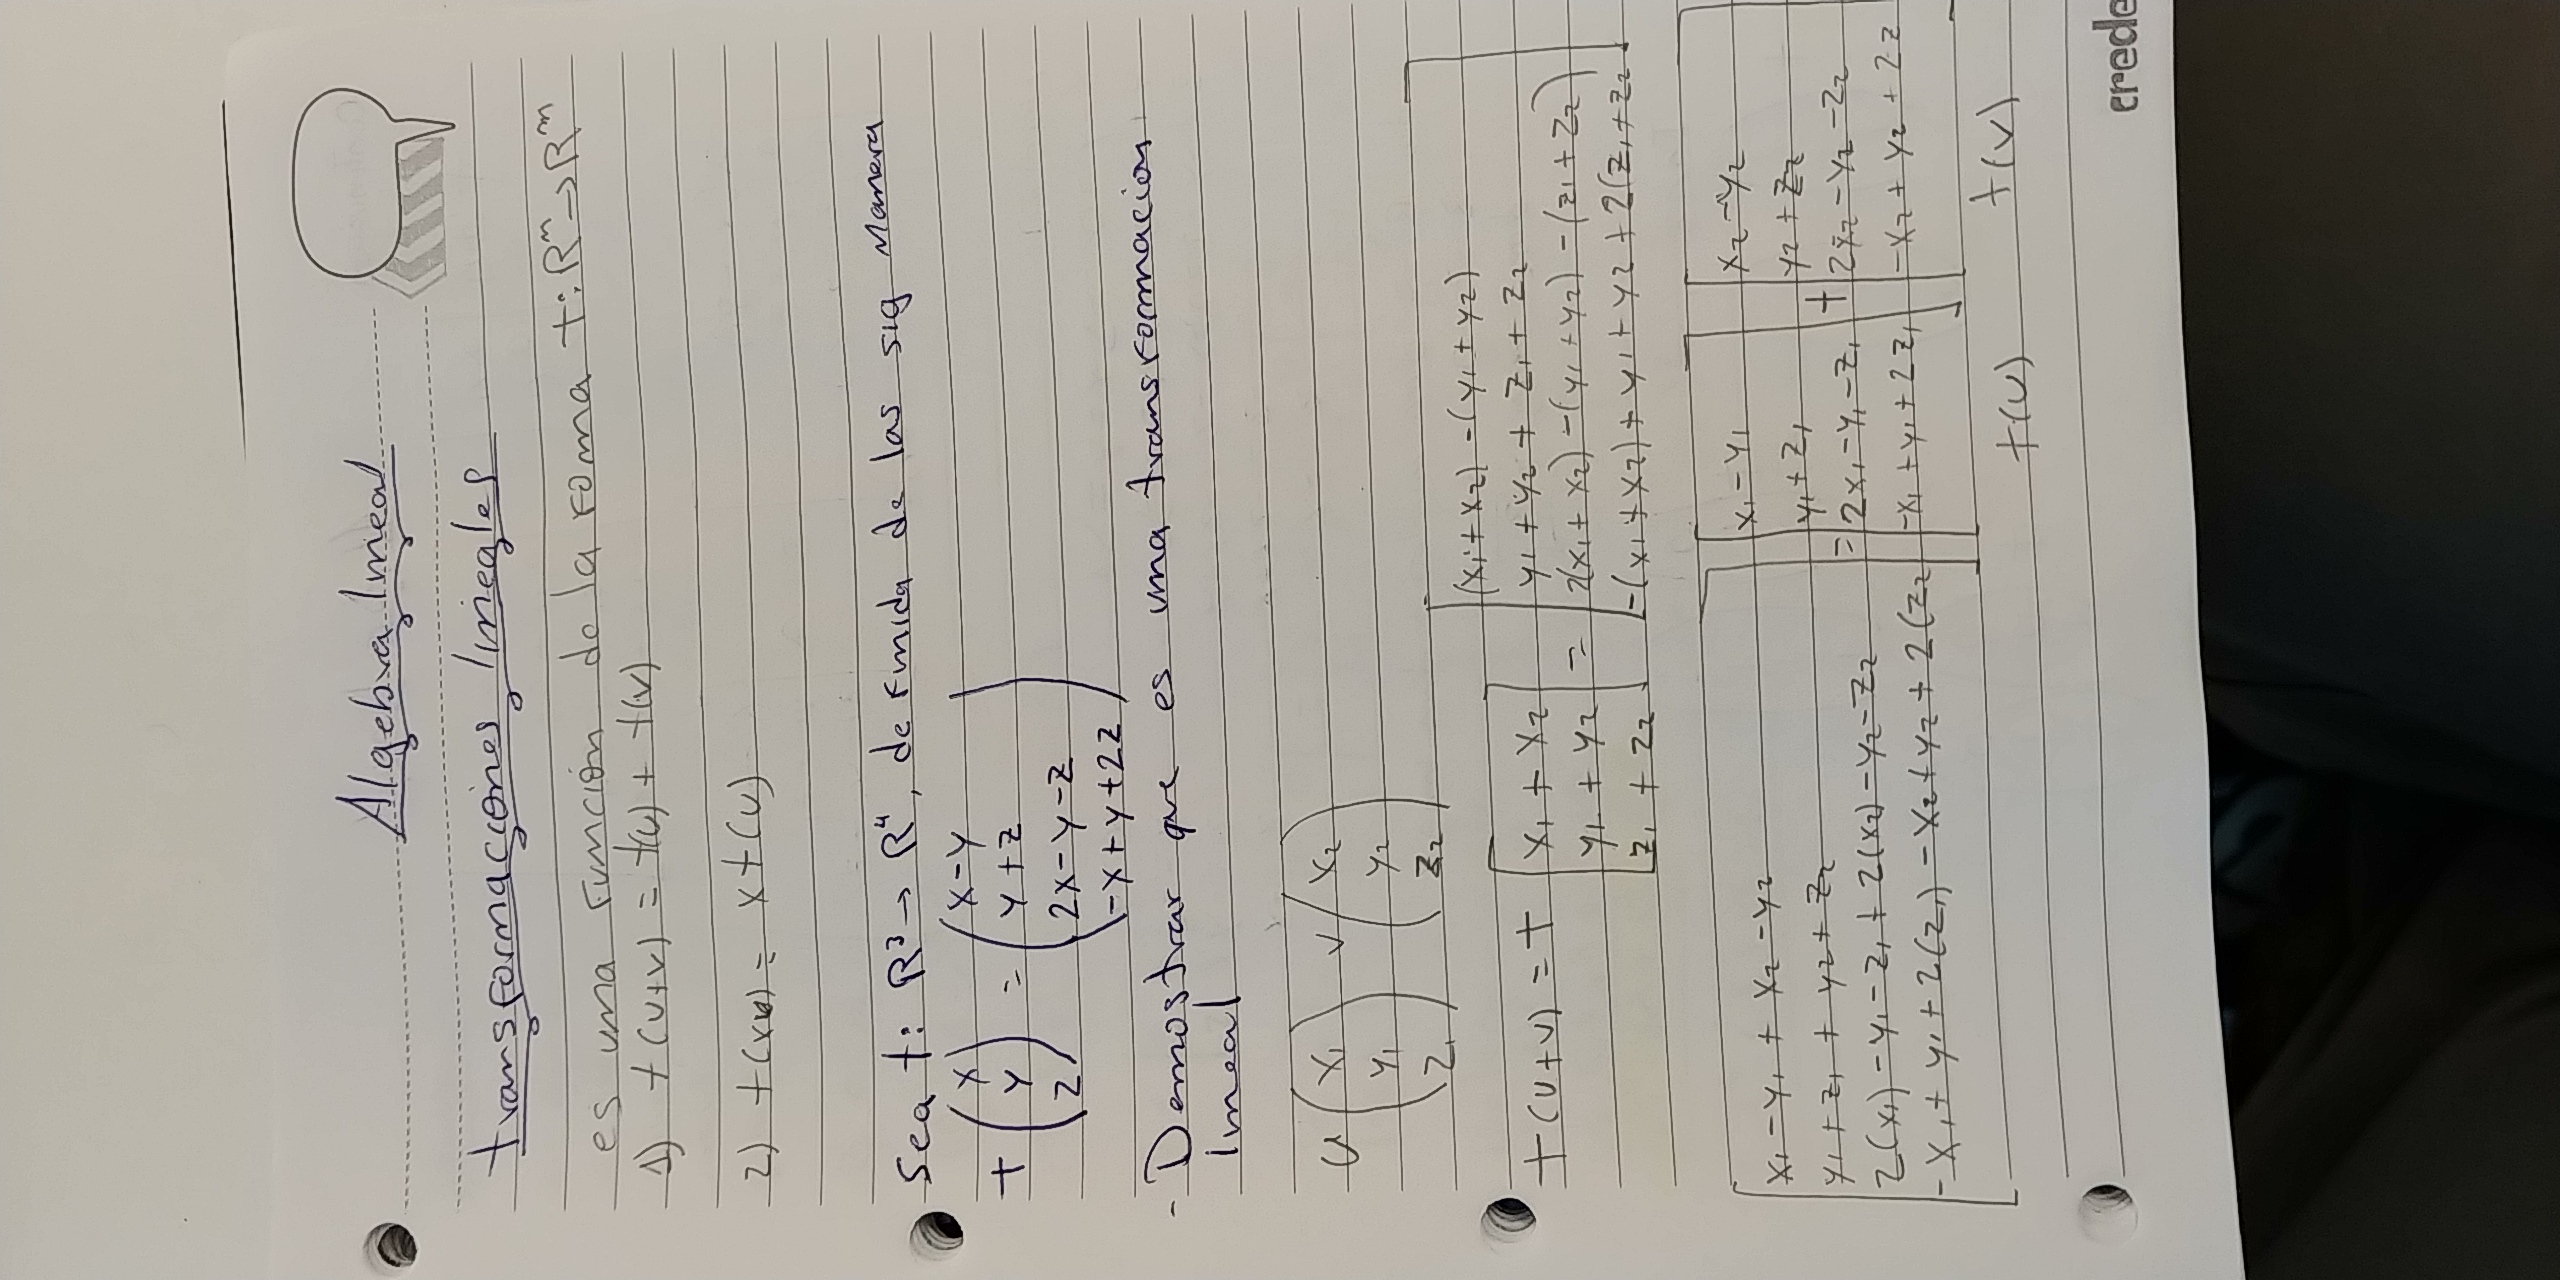 Algebra lineal
transformaciones lineales
es una función de la forma t: Rⁿ → Rᵐ
1) t(u+v) = t(u) + t(v)
2) t(xu) = x t(u)
Sea t: R³ → R⁴, definida de las sig manera
t (x y z) = (x-y
y+z
2x-y-z
-x+y+2z)
- Demostrar que es una transformacion
lineal
u (x₁ y₁ z₁) v (x₂ y₂ z₂)
t(u+v) = t [x₁ + x₂
y₁ + y₂
z₁ + z₂] = [(x₁ + x₂) - (y₁ + y₂)
y₁ + y₂ + z₁ + z₂
2(x₁ + x₂) - (y₁ + y₂) - (z₁ + z₂)
-(x₁ + x₂) + y₁ + y₂ + 2(z₁ + z₂]
[x₁ - y₁ + x₂ - y₂
y₁ + z₁ + y₂ + z₂
2(x₁) - y₁ - z₁ + 2(x₂) - y₂ - z₂
-x₁ + y₁ + 2(z₁) - x₂ + y₂ + 2(z₂]
= [x₁ - y₁
y₁ + z₁
2x₁ - y₁ - z₁
-x₁ + y₁ + 2z₁]
+ [x₂ - y₂
y₂ + z₂
2x₂ - y₂ - z₂
-x₂ + y₂ + 2z
t(u) t(v)